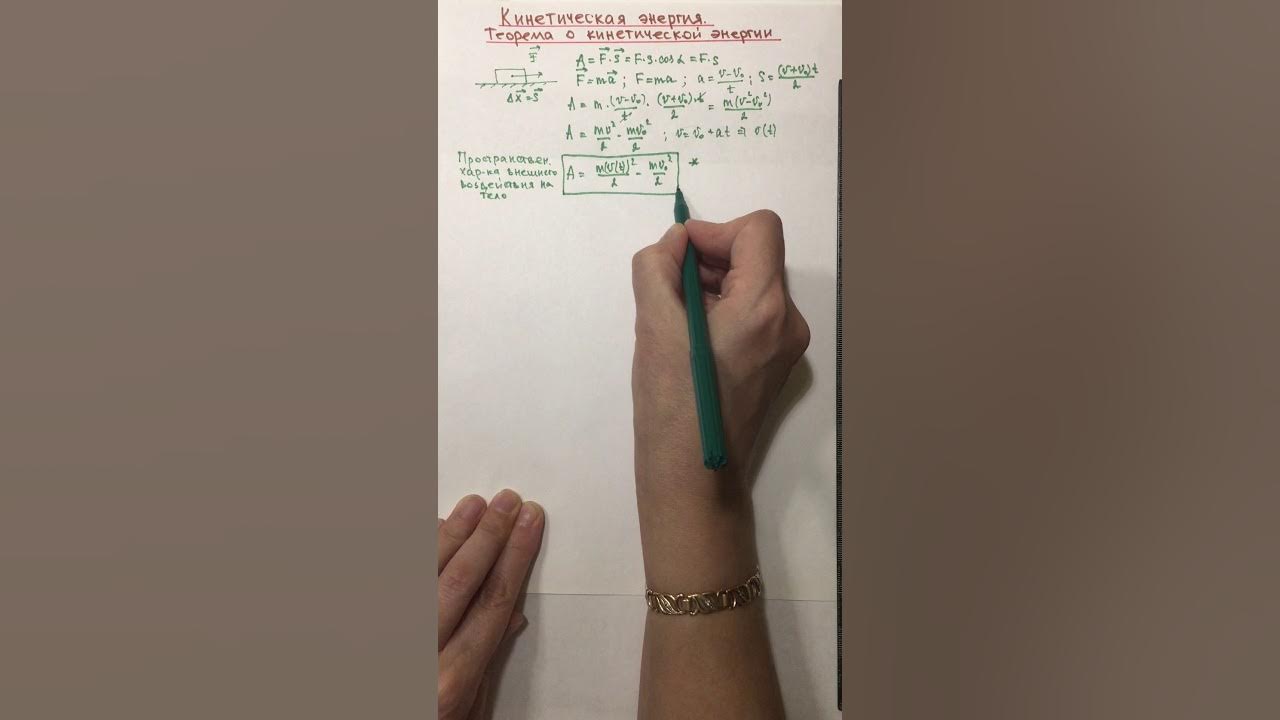 Кинетическая энергия.
Теорема о кинетической энергии
F⃗
A = F⃗·s⃗ = F·s·cos α = F·s
F⃗ = ma⃗ ; F = ma ; a = (v−v₀)/t ; S = (v+v₀)t/2
Δx⃗ = s⃗
A = m·(v−v₀)/t · (v+v₀)·t/2 = m(v²−v₀²)/2
A = mv²/2 − mv₀²/2 ; v = v₀ + at ⇒ v(t)
Пространствен.
хар-ка внешнего
воздействия на
тело
A = m(v(t))²/2 − mv₀²/2 *